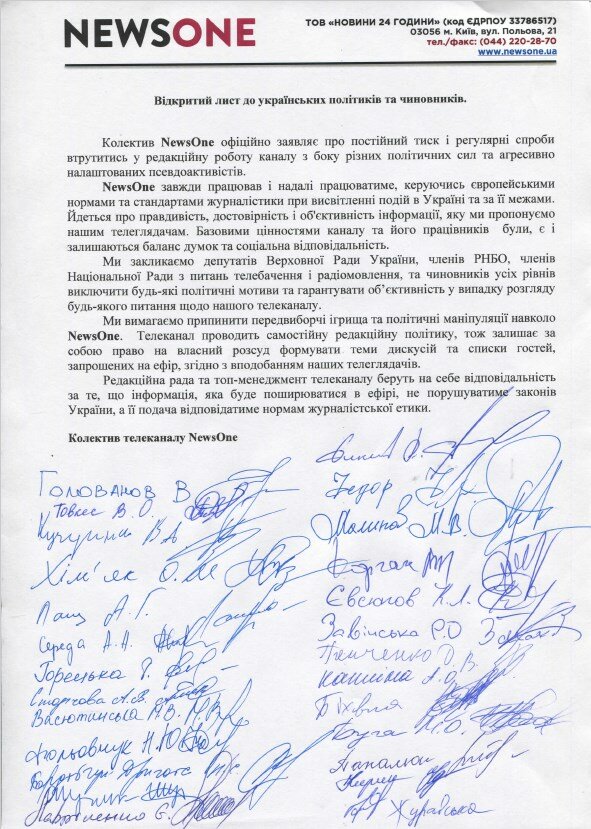 NEWSONE
ТОВ «НОВИНИ 24 ГОДИНИ» (код ЄДРПОУ 33786517)
03056 м. Київ, вул. Польова, 21
тел./факс: (044) 220-28-70
www.newsone.ua
Відкритий лист до українських політиків та чиновників.
Колектив NewsOne офіційно заявляє про постійний тиск і регулярні спроби
втрутитись у редакційну роботу каналу з боку різних політичних сил та агресивно
налаштованих псевдоактивістів.
NewsOne завжди працював і надалі працюватиме, керуючись європейськими
нормами та стандартами журналістики при висвітленні подій в Україні та за її межами.
Йдеться про правдивість, достовірність і об'єктивність інформації, яку ми пропонуємо
нашим телеглядачам. Базовими цінностями каналу та його працівників були, є і
залишаються баланс думок та соціальна відповідальність.
Ми закликаємо депутатів Верховної Ради України, членів РНБО, членів
Національної Ради з питань телебачення і радіомовлення, та чиновників усіх рівнів
виключити будь-які політичні мотиви та гарантувати об’єктивність у випадку розгляду
будь-якого питання щодо нашого телеканалу.
Ми вимагаємо припинити передвиборчі ігрища та політичні маніпуляції навколо
NewsOne. Телеканал проводить самостійну редакційну політику, тож залишає за
собою право на власний розсуд формувати теми дискусій та списки гостей,
запрошених на ефір, згідно з вподобанням наших телеглядачів.
Редакційна рада та топ-менеджмент телеканалу беруть на себе відповідальність
за те, що інформація, яка буде поширюватися в ефірі, не порушуватиме законів
України, а її подача відповідатиме нормам журналістської етики.
Колектив телеканалу NewsOne
Голованов В
В. О.
В. А
Хім'як О.
Лащ А. Г.
Середа А. А.
Горецька
Старчова А. В.
Васютинська
Н. Ю.
Лавріненко Є.
Федор
Малина М. В.
Євсюгов К. Л.
Завінська Р. О
Панченко
Кашина А. О.
Журавська